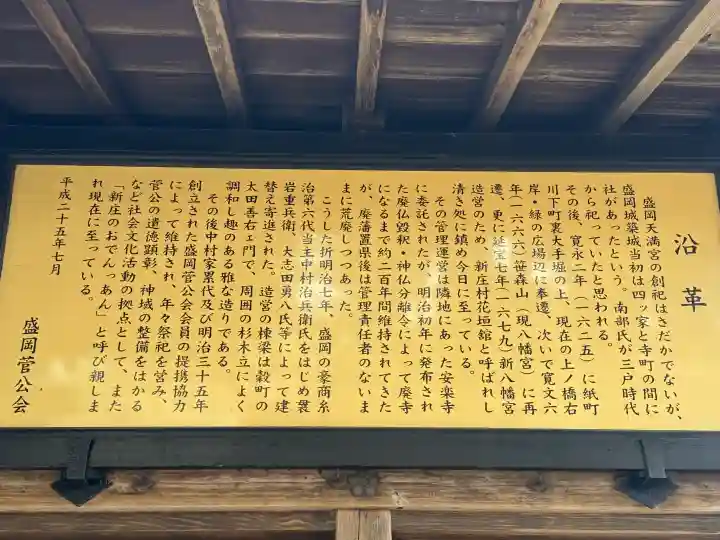 沿革
盛岡天満宮の創祀はさだかでないが、
盛岡城築城当初は四ッ家と寺町の間に
社があったという。南部氏が三戸時代
から祀っていたと思われる。
その後、寛永二年（一六二五）に紙町
川下町裏大手堀の上、現在の上ノ橋右
岸・緑の広場辺に奉遷、次いで寛文六
年（一六六六）笹森山（現八幡宮）に再
遷、更に延宝七年（一六七九）新八幡宮
造営のため、新庄村花垣舘と呼ばれし
清き処に鎮め今日に至っている。
その管理運営は隣地にあった安楽寺
に委託されたが、明治初年に発布され
た廃仏毀釈・神仏分離令によって廃寺
になるまで約二百年間維持されてきた
が、廃藩置県後は管理責任者のないま
まに荒廃しつつあった。
こうした折明治七年、盛岡の豪商糸
治第六代当主中村治兵衛氏をはじめ袰
岩重兵衛、大志田勇八氏等によって建
替え寄進された。造営の棟梁は穀町の
太田善右ェ門で、周囲の杉木立によく
調和し趣のある雅な造りである。
その後中村家累代及び明治三十五年
創立された盛岡菅公会会員の提携協力
によって維持され、年々祭祀を営み、
菅公の遺徳顕彰、神域の整備をはかる
など社会文化活動の拠点として、また
「新庄のおでんつぁん」と呼び親しま
れ現在に至っている。
平成二十五年七月
盛岡菅公会